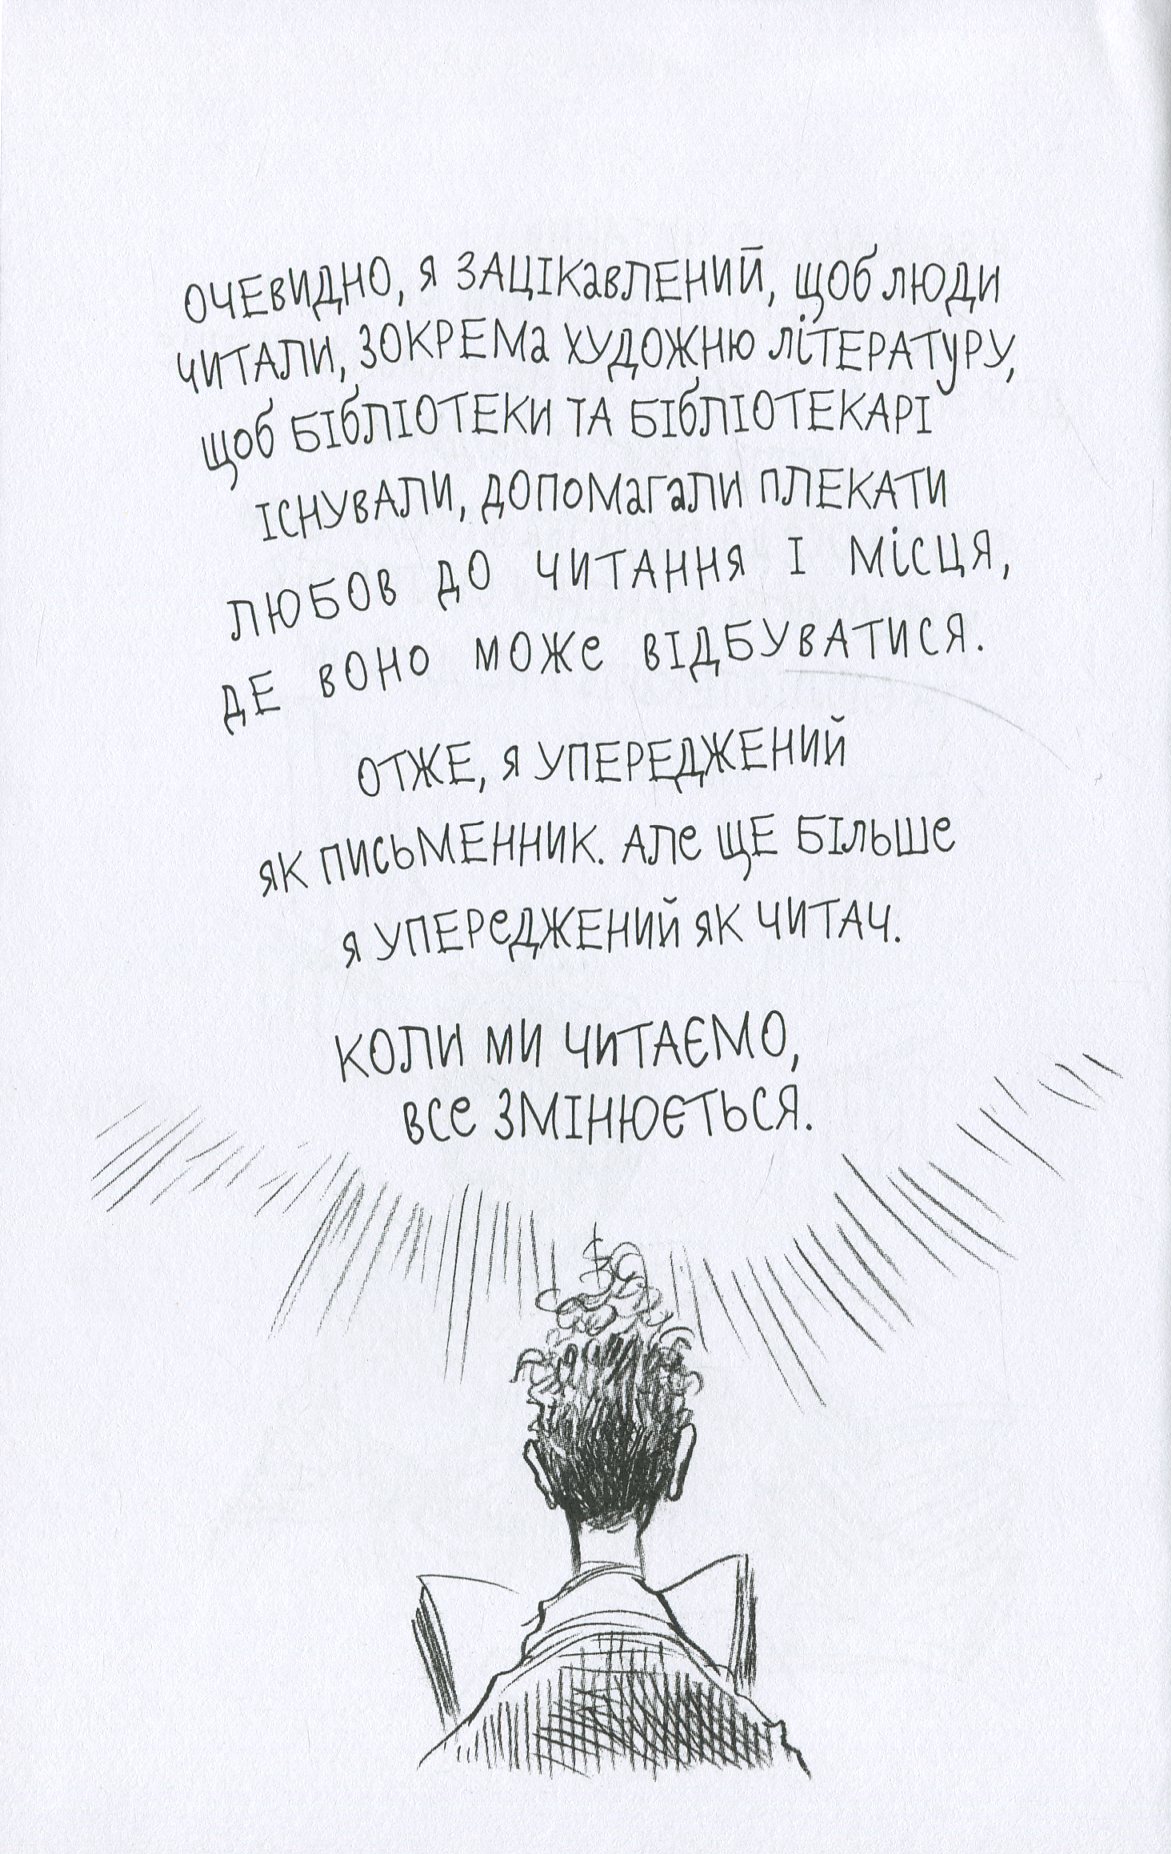 Очевидно, я зацікавлений, щоб люди
читали, зокрема художню літературу,
щоб бібліотеки та бібліотекарі
існували, допомагали плекати
любов до читання і місця,
де воно може відбуватися.
Отже, я упереджений
як письменник. Але ще більше
я упереджений як читач.
Коли ми читаємо,
все змінюється.